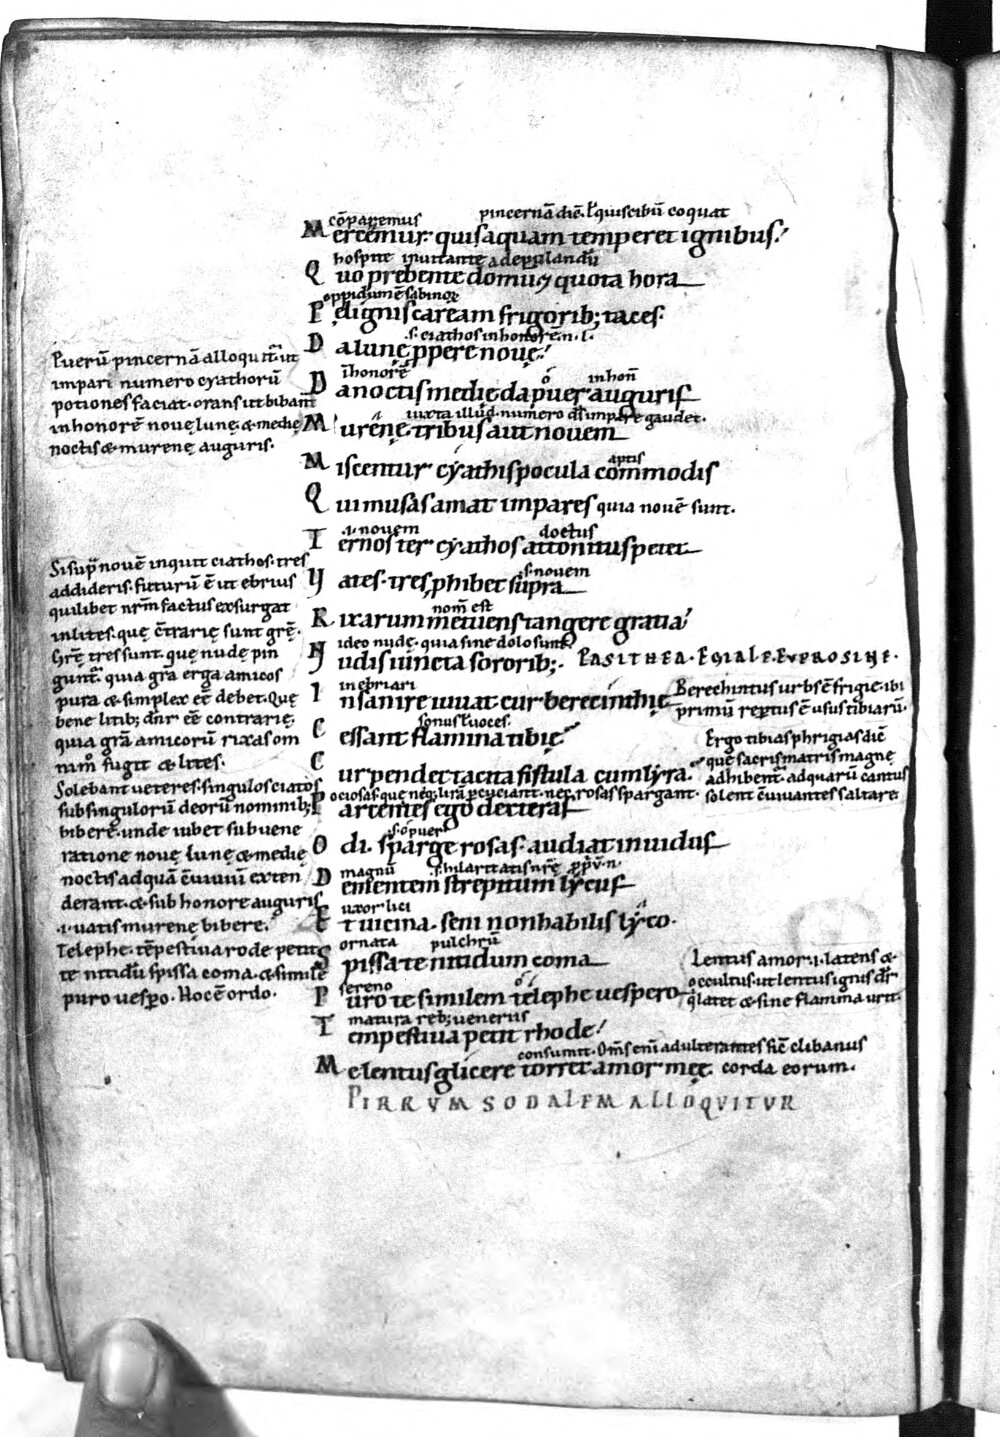 cõparemus pincernã diẽ. ł quis cibũ coquat
Mercemur. quis aquam temperet ignibus?
hospite inuitante
Quo prebente domũ. & quota hora
oppidum ẽ sabinoꝝ
Pęlignis caream frigorib; taces.
.s. ciathos in honorẽ .n. l.
Da lunę ꝓpere nouę!
ĩ honorẽ o in hoñ
Da noctis medię. da puer auguris
iuxta illud. numero d̃s impare gaudet.
Murenę. tribus aut nouem
aptis
Miscentur cyathis pocula commodis
Qui musas amat impares quia nouẽ sunt.
.i. nouem doctus
Ternos ter cyathos attonitus petet
.s. nouem
Uates. tres ꝓhibet supra
nom̃ est
Rixarum metuens tangere gratia
ideo nudę. quia sine dolo sunt
Nudis iuncta sororib;. PASITHEA. EGIALE. EVPROSINE.
inebriari
Insanire iuuat. cur berecinthię
sonus ł uoces.
Cessant flamina tibię
Cur pendet tacita fistula cum lyra.
ociosas quę neq; lirã ꝑcuciant. nec rosas spargant.
Parcentes ego dexteras
.s. o puer
Odi. sparge rosas. audiat inuidus
magnũ .s. hilaritatis nr̃ę
Dementem strepitum lycus
uxor lici
Et uicina. seni non habilis lyco.
ornata pulchrũ
Spissa te nitidum coma
sereno o
Puro te similem telephe uespero
matura reb; ueneriis
Tempestiua petit rhode!
consumit. Om̃s enĩ adulterantes sic̃ clibanus
Me lentus glicere torret amor męę. corda eorum.
PIRRVM SODALEM ALLOQVITVR
Puerũ pincernã alloquit̃ ut
impari numero cyathorũ
potiones faciat. orans ut bibant̃
in honorẽ nouę lunę & medię
noctis & murenę auguris.
Si sup̃ nouẽ inquit ciathos. tres
addideris. futurũ ẽ ut ebrius
quilibet nr̃m factus exsurgat
in lites. quę c̃trarię sunt gr̃ę.
Gr̃ę tres sunt. quę nudę pin
gunt̃. quia gr̃a erga amicos
pura & simplex eẽ debet. Quę
bene litib; dn̄r eẽ contrarię,
quia gr̃a amicorũ rixas om
nim̊ fugit & lites.
Solebant ueteres. singulos ciatos
sub singulorũ deorũ nominib;
bibere. unde iubet sub uene
ratione nouę lunę & medię
noctis ad quã c̃uiuiũ exten
derant. & sub honore auguris
.i. uatis murenę bibere.
Telephe. tẽpestiua rode petit
te nitidũ spissa coma. & similẽ
puro uesꝑo. Hoc ẽ ordo.
Berechintus urbs ẽ frigię. ibi
primũ reꝑtus ẽ usus tibiarũ.
Ergo tibias phrigias diẽ
que sacris matris magnę
adhibent̃. ad quarũ cantus
solent c̃uiuantes saltare.
Lentus amor. .i. latens &
occultus. ut lentus ignis dr̃
q̃ latet & sine flamma urit.